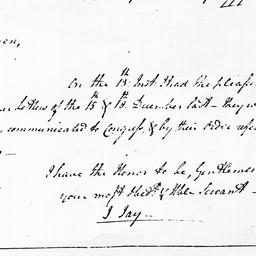 On the 13th Inst. I had the pleasu
Letters of the 15th & 18th December last - they w
communicated to Congress, & by their order refe
I have the Honor to be, Gentlemen
your most Obedt. & Hble Servant -
J Jay